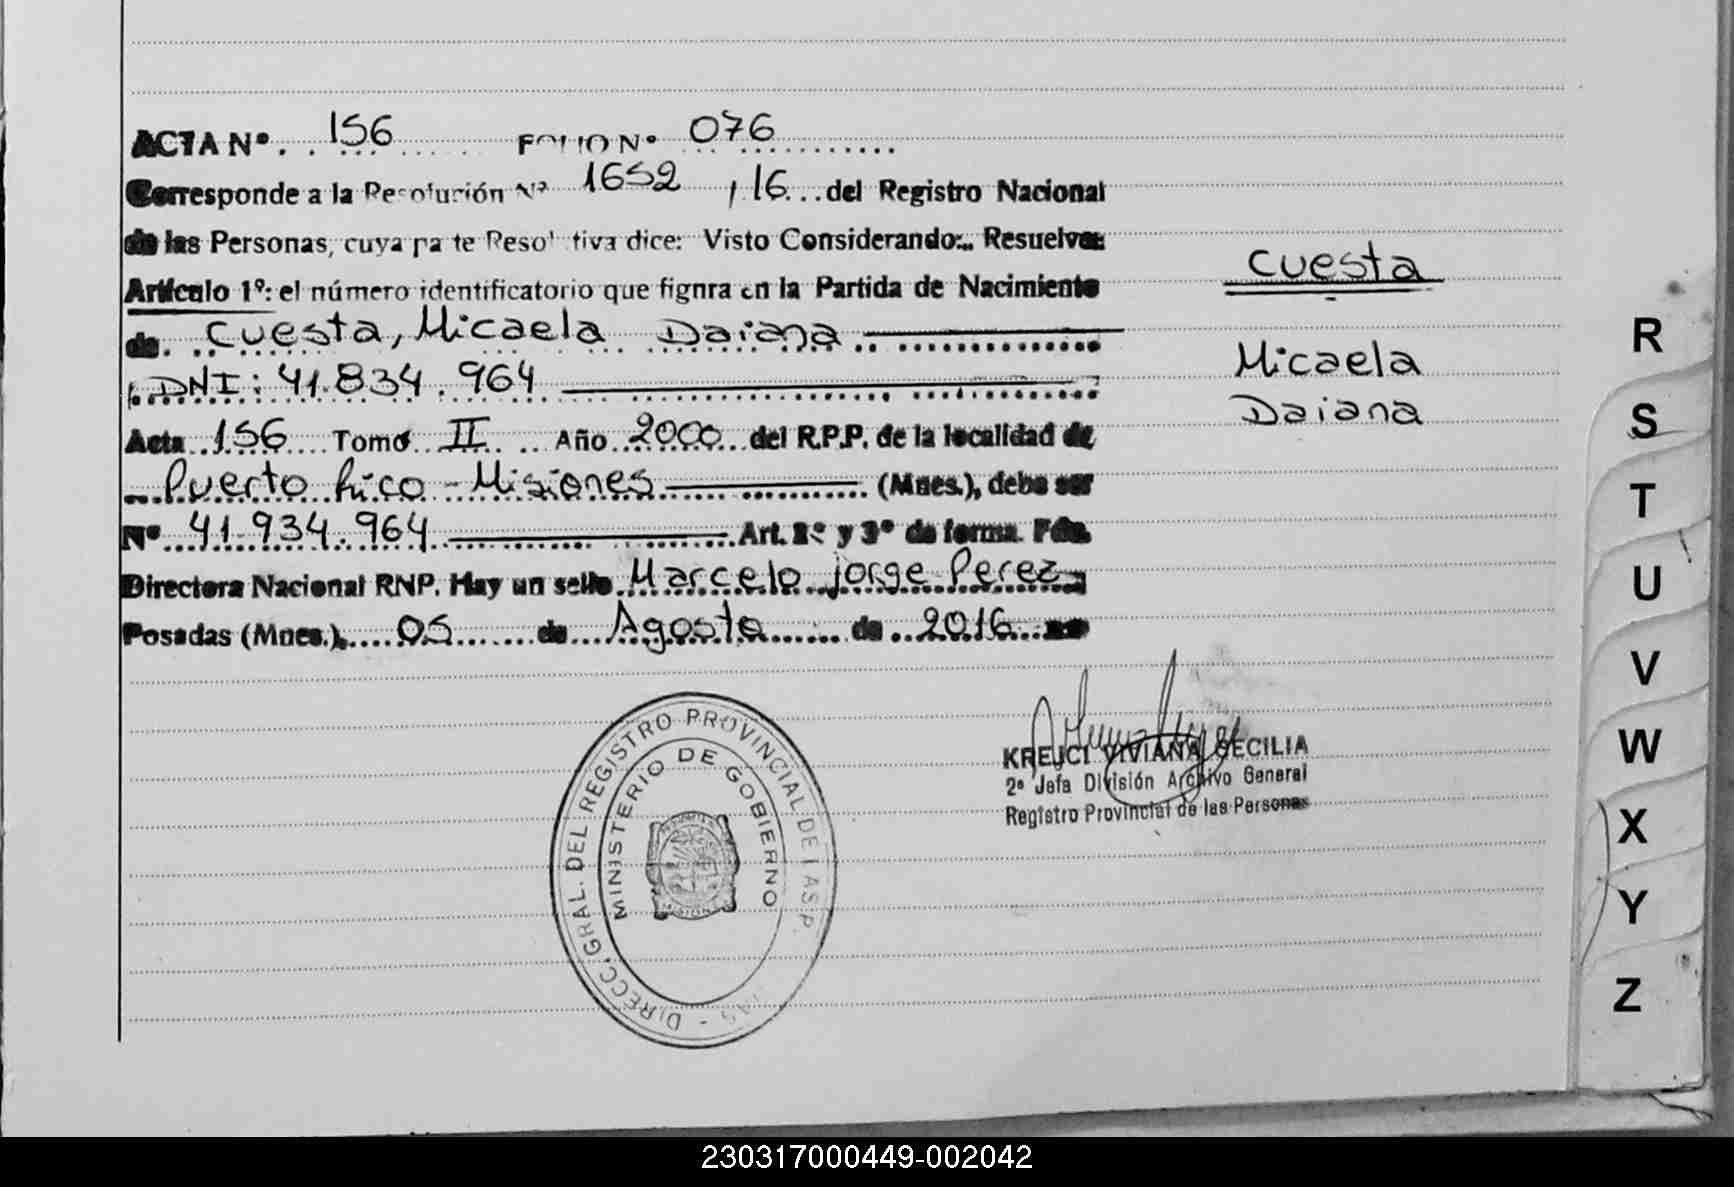 ACTA Nº 156 FOLIO Nº 076
Corresponde a la Resolución Nº 1652 /16 del Registro Nacional
de las Personas, cuya parte Resolutiva dice: Visto Considerando: Resuelve:
Artículo 1º: el número identificatorio que fignra en la Partida de Nacimiento
de Cuesta, Micaela Daiana
DNI: 41.834.964
Acta 156 Tomo II Año 2000 del R.P.P. de la localidad de
Puerto Rico - Misiones (Mnes.), debe ser
Nº 41.934.964 Art. 2º y 3º de forma. Fdo.
Directora Nacional RNP. Hay un sello Marcelo Jorge Perez
Posadas (Mnes.), 05 de Agosto de 2016
Cuesta
Micaela
Daiana
DIRECC. GRAL. DEL REGISTRO PROVINCIAL DE LAS P
MINISTERIO DE GOBIERNO
KREJCI VIVIANA CECILIA
2ª Jefa División Archivo General
Registro Provincial de las Personas
R
S
T
U
V
W
X
Y
Z
230317000449-002042